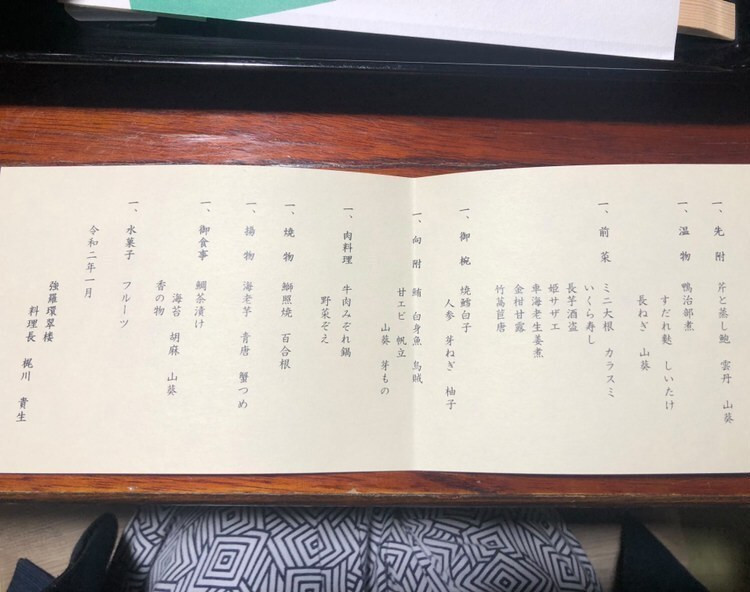 一、先附 芹と蒸し鮑 雲丹 山葵
一、温物 鴨治部煮
すだれ麩 しいたけ
長ねぎ 山葵
一、前菜 ミニ大根 カラスミ
いくら寿し
長芋酒盗
姫サザエ
車海老生姜煮
金柑甘露
竹萵苣唐
一、御椀 焼鱈白子
人参 芽ねぎ 柚子
一、向附 鮪 白身魚 烏賊
甘エビ 帆立
山葵 芽もの
一、肉料理 牛肉みぞれ鍋
野菜ぞえ
一、焼物 鰤照焼 百合根
一、揚物 海老芋 青唐 蟹つめ
一、御食事 鯛茶漬け
海苔 胡麻 山葵
香の物
一、水菓子 フルーツ
令和二年一月
強羅環翠楼
料理長 梶川 貴生